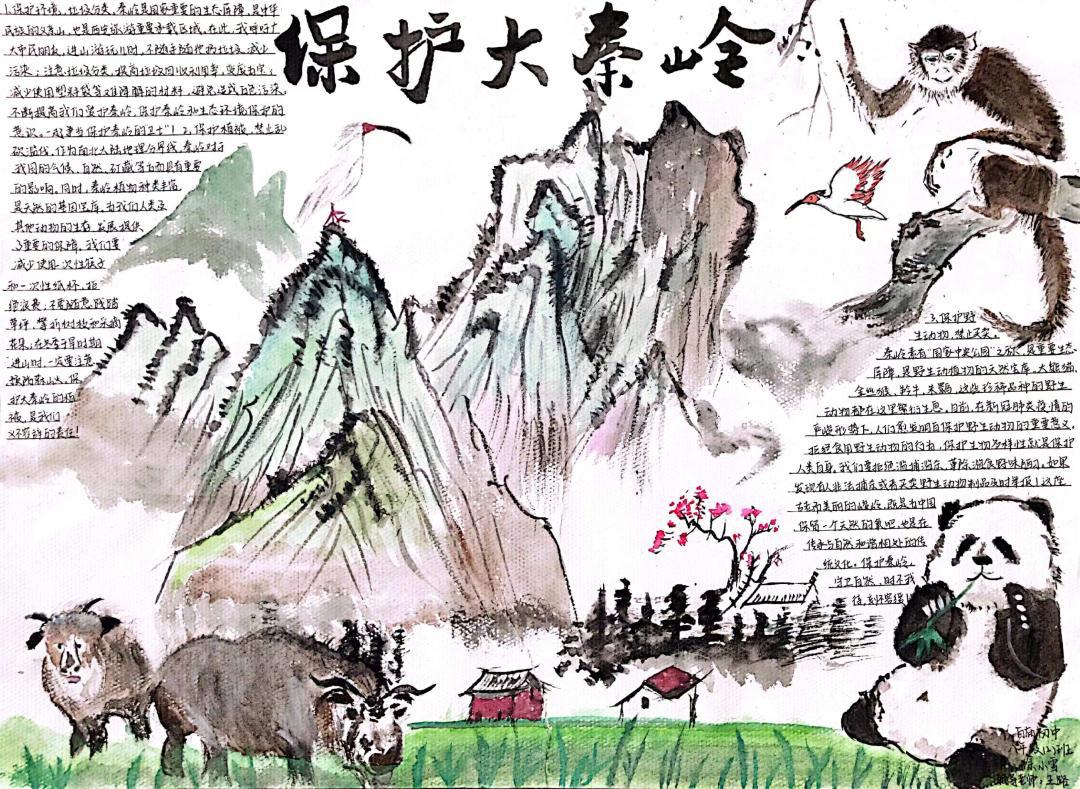 保护大秦岭
1.保护环境,垃圾分类。秦岭是国家重要的生态屏障,是中华
民族的父亲山,也是西安旅游重要承载区域,在此,我呼吁广
大市民朋友,进山游玩儿时,不随手随地扔垃圾,减少
污染;注意垃圾分类,提高垃圾回收利用率,变废为宝;
减少使用塑料袋等难降解的材料,避免造成白色污染,
不断提高我们爱护秦岭,保护秦岭和生态环境保护的
意识。一起争当保护秦岭的卫士"!2.保护植被,禁止乱
砍滥伐,作为南北大陆地理分界线,秦岭对于
我国的气候、自然、矿藏等方面具有重要
的影响。同时,秦岭植物种类丰富,
是天然的基因宝库,为我们人类及
其他动物的生存、发展提供
了重要的保障,我们要
减少使用一次性筷子
和一次性纸杯,拒
绝浪费;不要随意践踏
草坪、攀折树枝和采摘
花果,在冬季干旱时期
进山时,一定要注意
预防山火,保
护大秦岭的植
被,是我们
义不容辞的责任!
3.保护野
生动物,禁止买卖。
秦岭素有"国家中央公园"之称,是重要生态
屏障,是野生动植物的天然宝库,大熊猫、
金丝猴、羚牛、朱鹮,这些珍稀品种的野生
动物都在这里繁衍生息,目前,在新冠肺炎疫情的
严峻形势下,人们愈发明白保护野生动物的重要意义,
拒绝食用野生动物的行为,保护生物多样性就是保护
人类自身,我们要拒绝滥捕滥杀、革除滥食野味陋习,如果
发现有人非法捕杀或者买卖野生动物制品及时举报!这座
古老而美丽的秦岭,既是为中国
保留一个天然的氧吧,也是在
传承与自然和谐相处的传
统文化,保护秦岭,
守卫自然,时不我
待,刻不容缓!
初中
八年级(2)班
小雪
指导老师:王璐